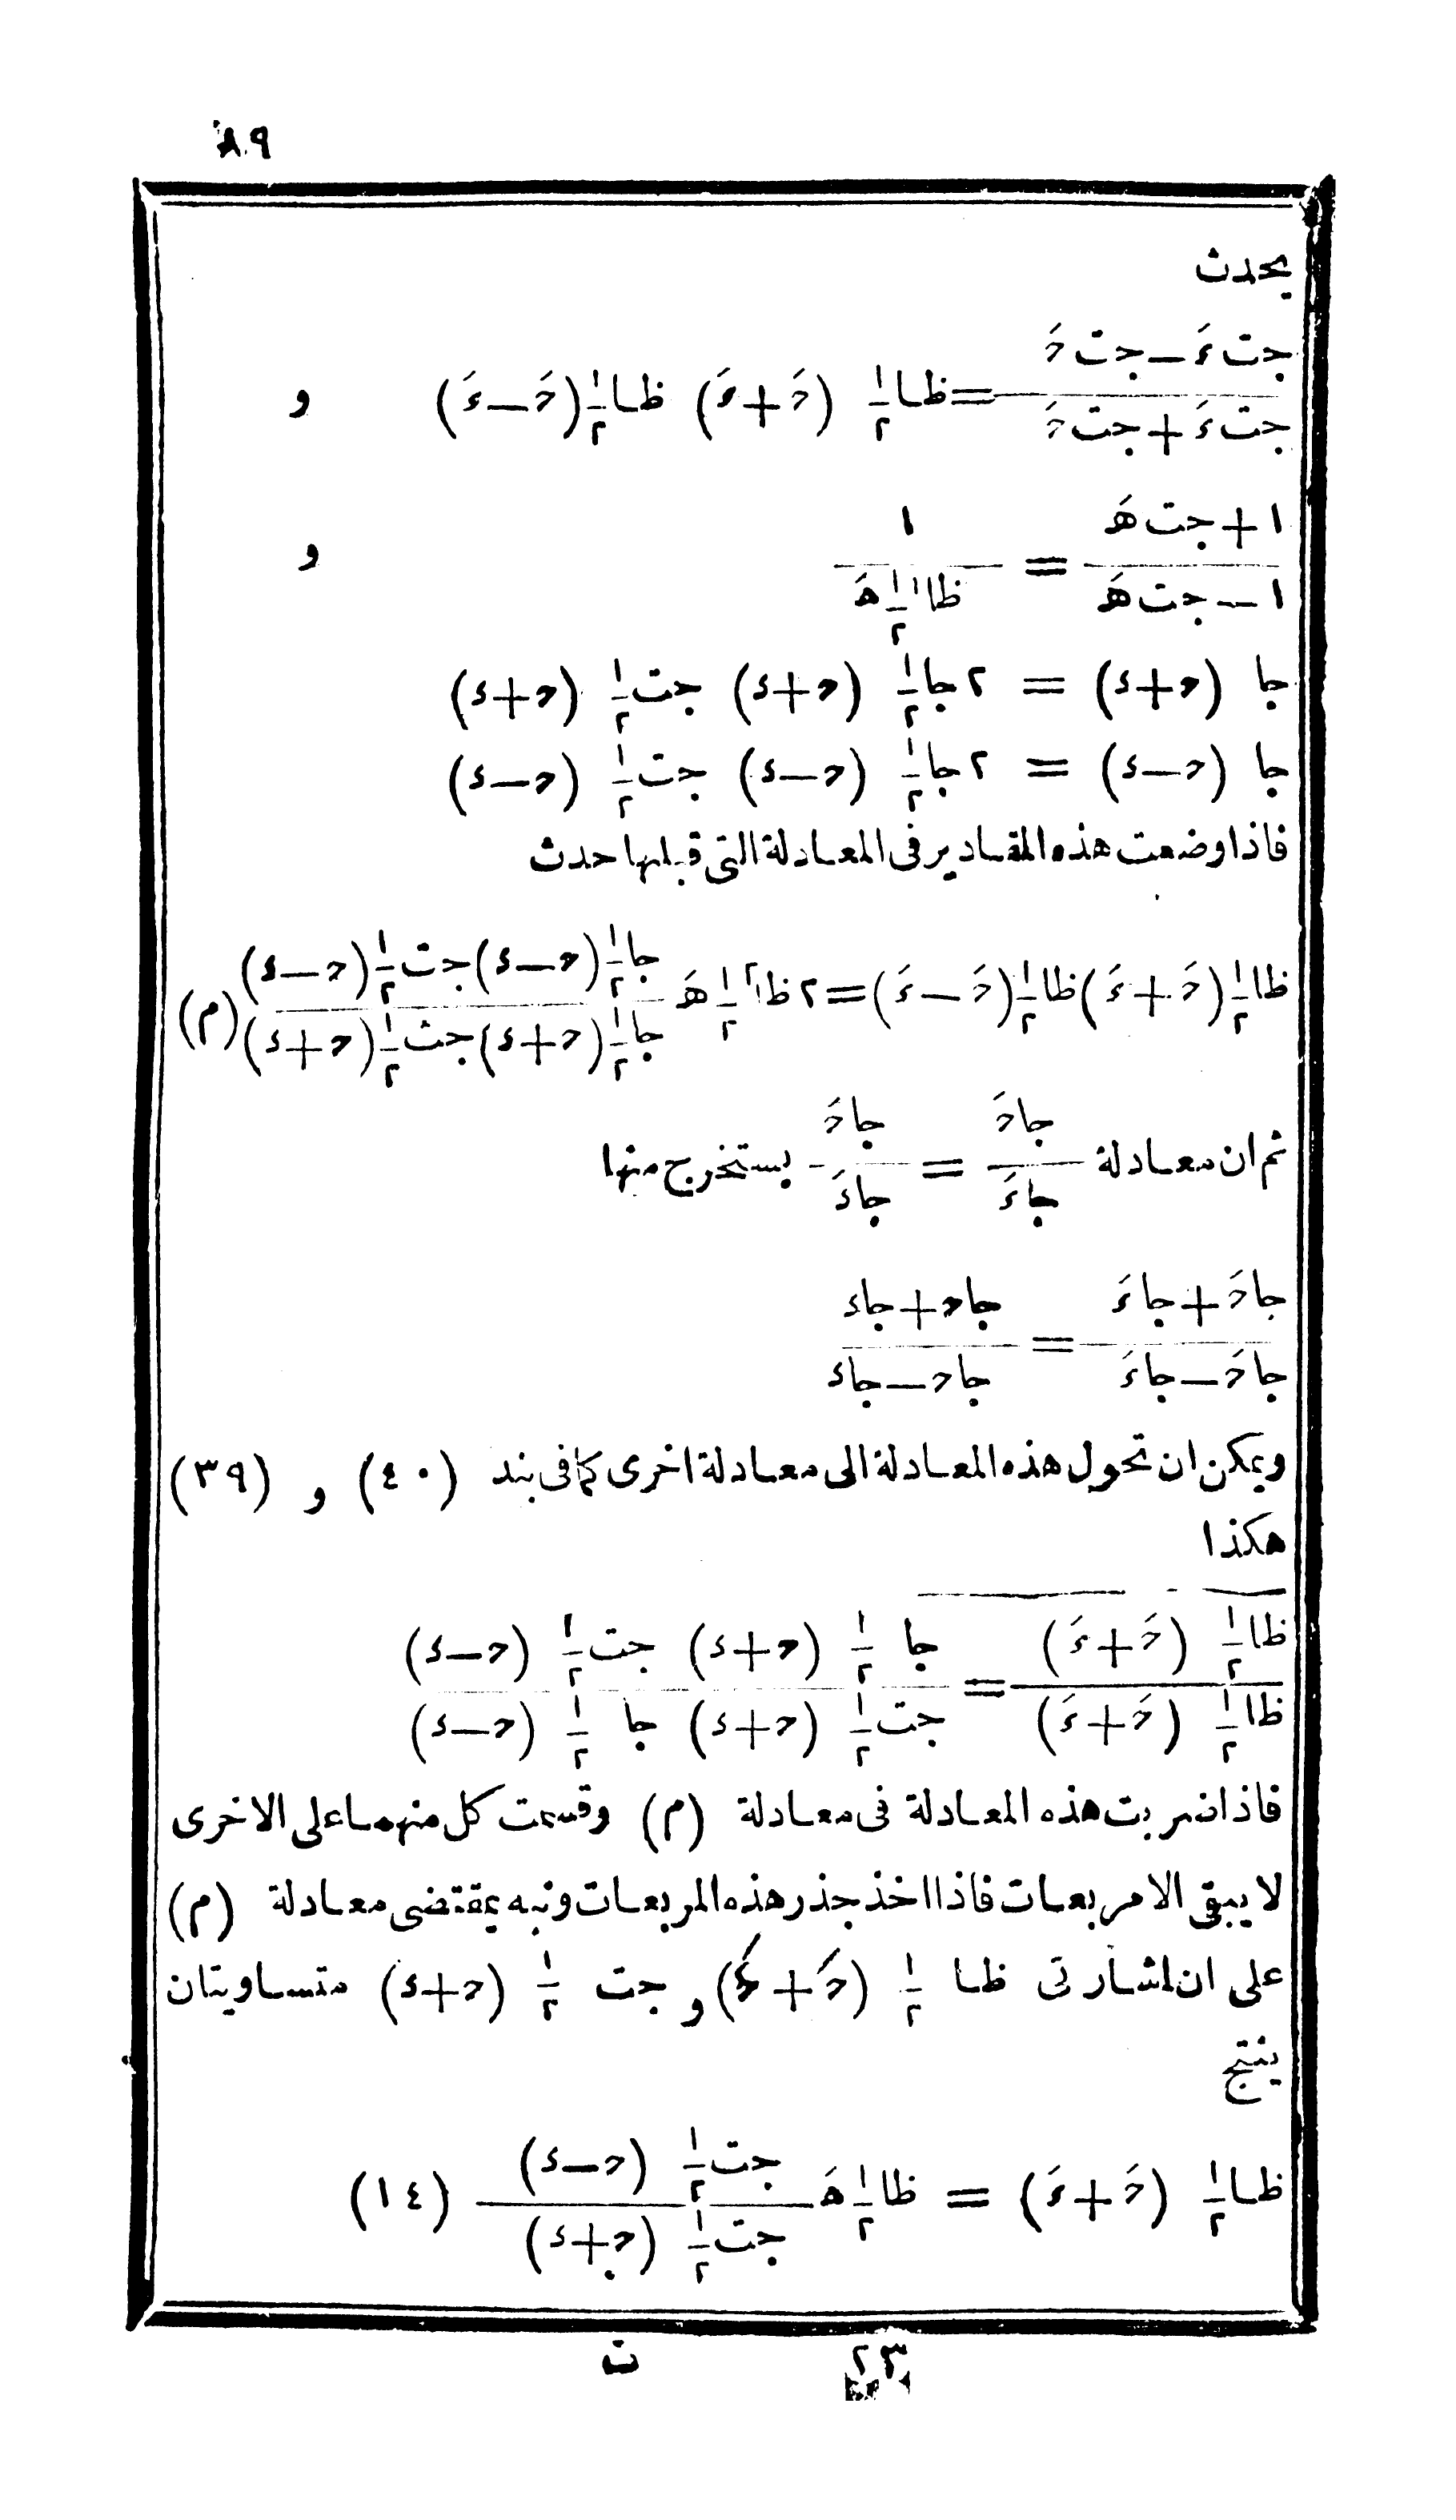 ٨٩
يحدث
(جت ءَ − جت حَ)/(جت ءَ + جت حَ) = ظا ١/٢ (حَ+ءَ) ظا ١/٢ (حَ−ءَ) و
(١ + جت هَ)/(١ − جت هَ) = ١/(ظا٢ ١/٢ هَ) و
جا (ح+ء) = ٢ جا ١/٢ (ح+ء) جت ١/٢ (ح+ء)
جا (ح−ء) = ٢ جا ١/٢ (ح−ء) جت ١/٢ (ح−ء)
فاذا وضعت هذه المقادير فى المعادلة التى قبلها حدث
ظا ١/٢ (حَ+ءَ) ظا ١/٢ (حَ−ءَ) = ٢ ظا٢ ١/٢ هَ (جا ١/٢ (ح−ء) جت ١/٢ (ح−ء))/(جا ١/٢ (ح+ء) جت ١/٢ (ح+ء)) (م)
ثم ان معادلة جا حَ/جا ءَ = جا حَ/جا ءَ يستخرج منها
(جا حَ + جا ءَ)/(جا حَ − جا ءَ) = (جا ح + جا ء)/(جا ح − جا ء)
ويمكن ان تحول هذه المعادلة الى معادلة اخرى كما فى بند (٤٠) و (٣٩)
هكذا
(ظا ١/٢ (حَ+ءَ))/(ظا ١/٢ (حَ+ءَ)) = (جا ١/٢ (ح+ء) جت ١/٢ (ح−ء))/(جت ١/٢ (ح+ء) جا ١/٢ (ح−ء))
فاذا ضربت هذه المعادلة فى معادلة (م) وقسمت كل منهما على الاخرى
لا يبقى الا مربعات فاذا اخذ جذر هذه المربعات ونبه بمقتضى معادلة (م)
على ان اشارتى ظا ١/٢ (حَ+ءَ) و جت ١/٢ (ح+ء) متساويتان
ينتج
ظا ١/٢ (حَ+ءَ) = ظا ١/٢ هَ (جت ١/٢ (ح−ء))/(جت ١/٢ (ح+ء)) (١٤)
٢٣ ت